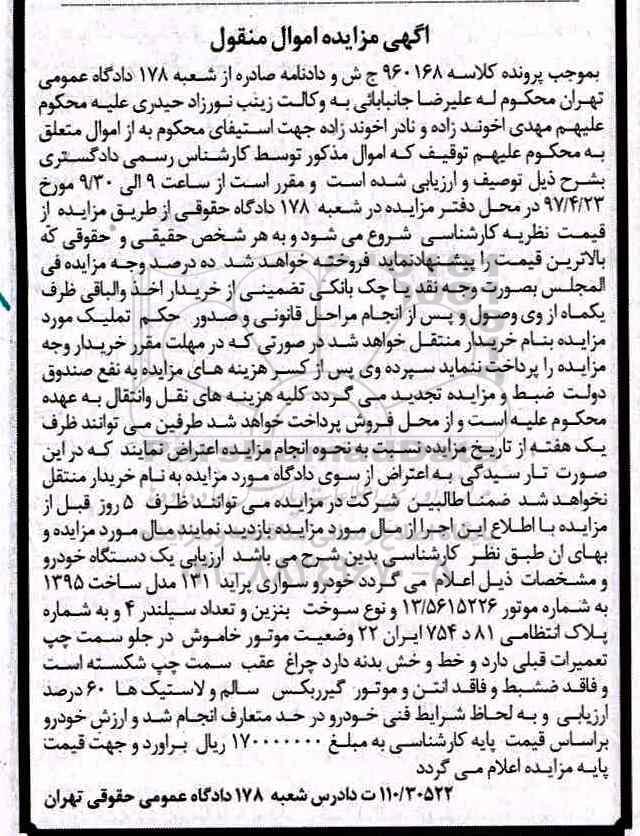 آگهی مزایده اموال منقول
بموجب پرونده کلاسه ۹۶۰۱۶۸ ج ش و دادنامه صادره از شعبه ۱۷۸ دادگاه عمومی
تهران محکوم له علیرضا جانبابائی به وکالت زینب نورزاد حیدری علیه محکوم
علیهم مهدی اخوند زاده و نادر اخوند زاده جهت استیفای محکوم به از اموال متعلق
به محکوم علیهم توقیف که اموال مذکور توسط کارشناس رسمی دادگستری
بشرح ذیل توصیف و ارزیابی شده است و مقرر است از ساعت ۹ الی ۹/۳۰ مورخ
۹۷/۴/۲۳ در محل دفتر مزایده در شعبه ۱۷۸ دادگاه حقوقی از طریق مزایده از
قیمت نظریه کارشناسی شروع می شود و به هر شخص حقیقی و حقوقی که
بالاترین قیمت را پیشنهادنماید فروخته خواهد شد ده درصد وجه مزایده فی
المجلس بصورت وجه نقد یا چک بانکی تضمینی از خریدار اخذ والباقی ظرف
یکماه از وی وصول و پس از انجام مراحل قانونی و صدور حکم تملیک مورد
مزایده بنام خریدار منتقل خواهد شد در صورتی که در مهلت مقرر خریدار وجه
مزایده را پرداخت ننماید سپرده وی پس از کسر هزینه های مزایده به نفع صندوق
دولت ضبط و مزایده تجدید می گردد کلیه هزینه های نقل وانتقال به عهده
محکوم علیه است و از محل فروش پرداخت خواهد شد طرفین می توانند ظرف
یک هفته از تاریخ مزایده نسبت به نحوه انجام مزایده اعتراض نمایند که در این
صورت تا رسیدگی به اعتراض از سوی دادگاه مورد مزایده به نام خریدار منتقل
نخواهد شد ضمنا طالبین شرکت در مزایده می توانند ظرف ۵ روز قبل از
مزایده با اطلاع این اجرا از مال مورد مزایده بازدید نمایند مال مورد مزایده و
بهای ان طبق نظر کارشناسی بدین شرح می باشد ارزیابی یک دستگاه خودرو
و مشخصات ذیل اعلام می گردد خودرو سواری پراید ۱۳۱ مدل ساخت ۱۳۹۵
به شماره موتور ۱۳/۵۶۱۵۲۲۶ و نوع سوخت بنزین و تعداد سیلندر ۴ و به شماره
پلاک انتظامی ۸۱ د ۷۵۴ ایران ۲۲ وضعیت موتور خاموش در جلو سمت چپ
تعمیرات قبلی دارد و خط و خش بدنه دارد چراغ عقب سمت چپ شکسته است
و فاقد ضشبط و فاقد انتن و موتور گیربکس سالم و لاستیک ها ۶۰ درصد
ارزیابی و به لحاظ شرایط فنی خودرو در حد متعارف انجام شد و ارزش خودرو
براساس قیمت پایه کارشناسی به مبلغ ۱۷۰۰۰۰۰۰۰ ریال براورد و جهت قیمت
پایه مزایده اعلام می گردد
۱۱۰/۳۰۵۲۲ ت دادرس شعبه ۱۷۸ دادگاه عمومی حقوقی تهران